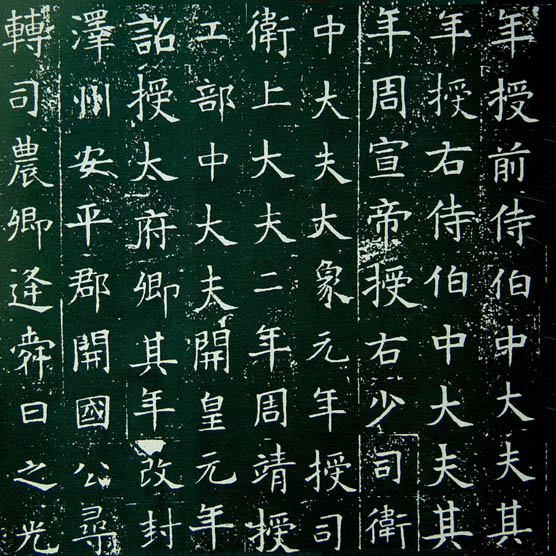 年授前侍伯中大夫其
年授右侍伯中大夫其
年周宣帝授右少司衛
中大夫大象元年授司
衛上大夫二年周靖授
工部中大夫開皇元年
詔授太府卿其年改封
澤州安平郡開國公尋
轉司農卿逢舜日之光